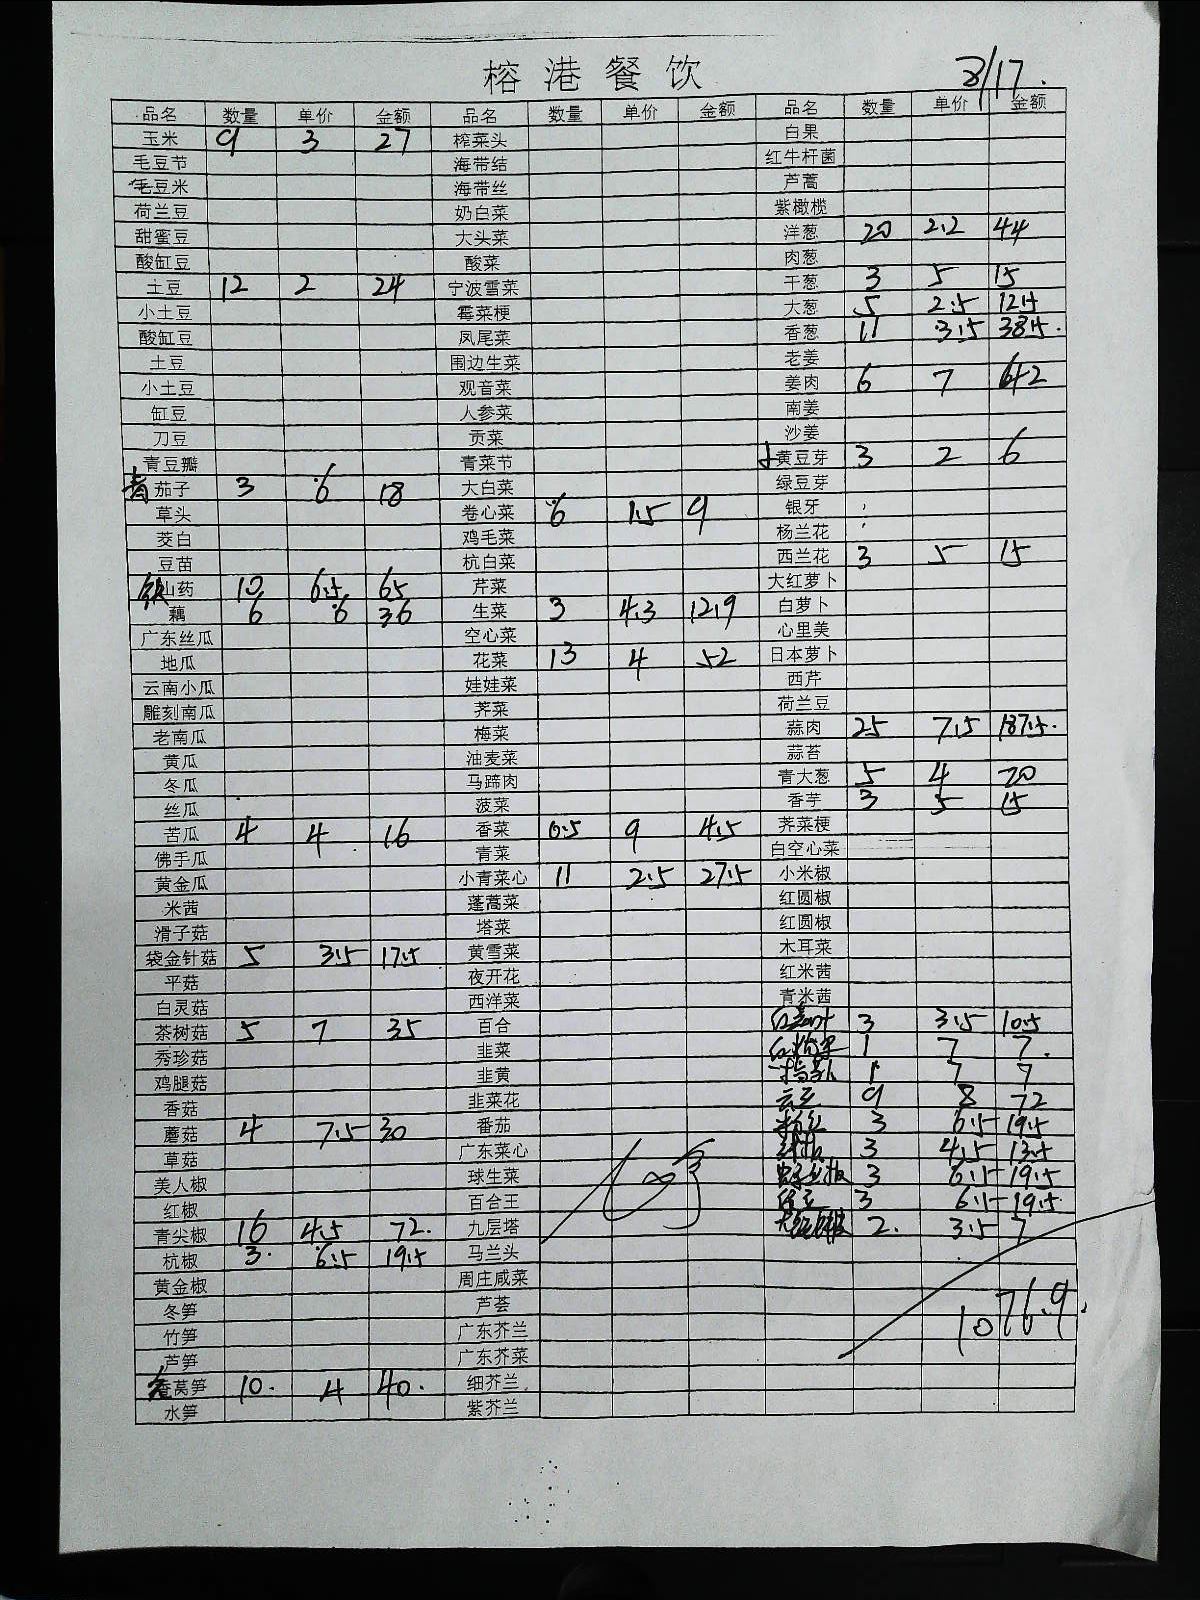 榕港餐饮
3/17.
品名 数量 单价 金额 品名 数量 单价 金额 品名 数量 单价 金额
玉米 9 3 27 榨菜头 白果
毛豆节 海带结 红牛杆菌
毛豆米 海带丝 芦蒿
荷兰豆 奶白菜 紫橄榄
甜蜜豆 大头菜 洋葱 20 2.2 44
酸缸豆 酸菜 肉葱
土豆 12 2 24 宁波雪菜 干葱 3 5 15
小土豆 霉菜梗 大葱 5 2.5 12.5
酸缸豆 凤尾菜 香葱 11 3.5 38.5
土豆 围边生菜 老姜
小土豆 观音菜 姜肉 6 7 42
缸豆 人参菜 南姜
刀豆 贡菜 沙姜
青豆瓣 青菜节 黄豆芽 3 2 6
青茄子 3 6 18 大白菜 绿豆芽
草头 卷心菜 6 1.5 9 银牙
茭白 鸡毛菜 杨兰花
豆苗 杭白菜 西兰花 3 5 15
铁山药 10 6.5 65 芹菜 大红萝卜
藕 6 6 36 生菜 3 4.3 12.9 白萝卜
广东丝瓜 空心菜 心里美
地瓜 花菜 13 4 52 日本萝卜
云南小瓜 娃娃菜 西芹
雕刻南瓜 荠菜 荷兰豆
老南瓜 梅菜 蒜肉 25 7.5 187.5
黄瓜 油麦菜 蒜苔
冬瓜 马蹄肉 青大葱 5 4 20
丝瓜 菠菜 香芋 3 5 15
苦瓜 4 4 16 香菜 0.5 9 4.5 荠菜梗
佛手瓜 青菜 白空心菜
黄金瓜 小青菜心 11 2.5 27.5 小米椒
米茜 蓬蒿菜 红圆椒
滑子菇 塔菜 红圆椒
袋金针菇 5 3.5 17.5 黄雪菜 木耳菜
平菇 夜开花 红米茜
白灵菇 西洋菜 青米茜
茶树菇 5 7 35 百合 3 3.5 10.5
秀珍菇 韭菜 1 7 7
鸡腿菇 韭黄 1 7 7
香菇 韭菜花 云豆 9 8 72
蘑菇 4 7.5 30 番茄 3 6.5 19.5
草菇 广东菜心 3 4.5 13.5
美人椒 球生菜 3 6.5 19.5
红椒 百合王 3 6.5 19.5
青尖椒 16 4.5 72 九层塔 2 3.5 7
杭椒 3 6.5 19.5 马兰头
黄金椒 周庄咸菜
冬笋 芦荟 1076.9
竹笋 广东芥兰
芦笋 广东芥菜
莴笋 10 4 40 细芥兰
水笋 紫芥兰